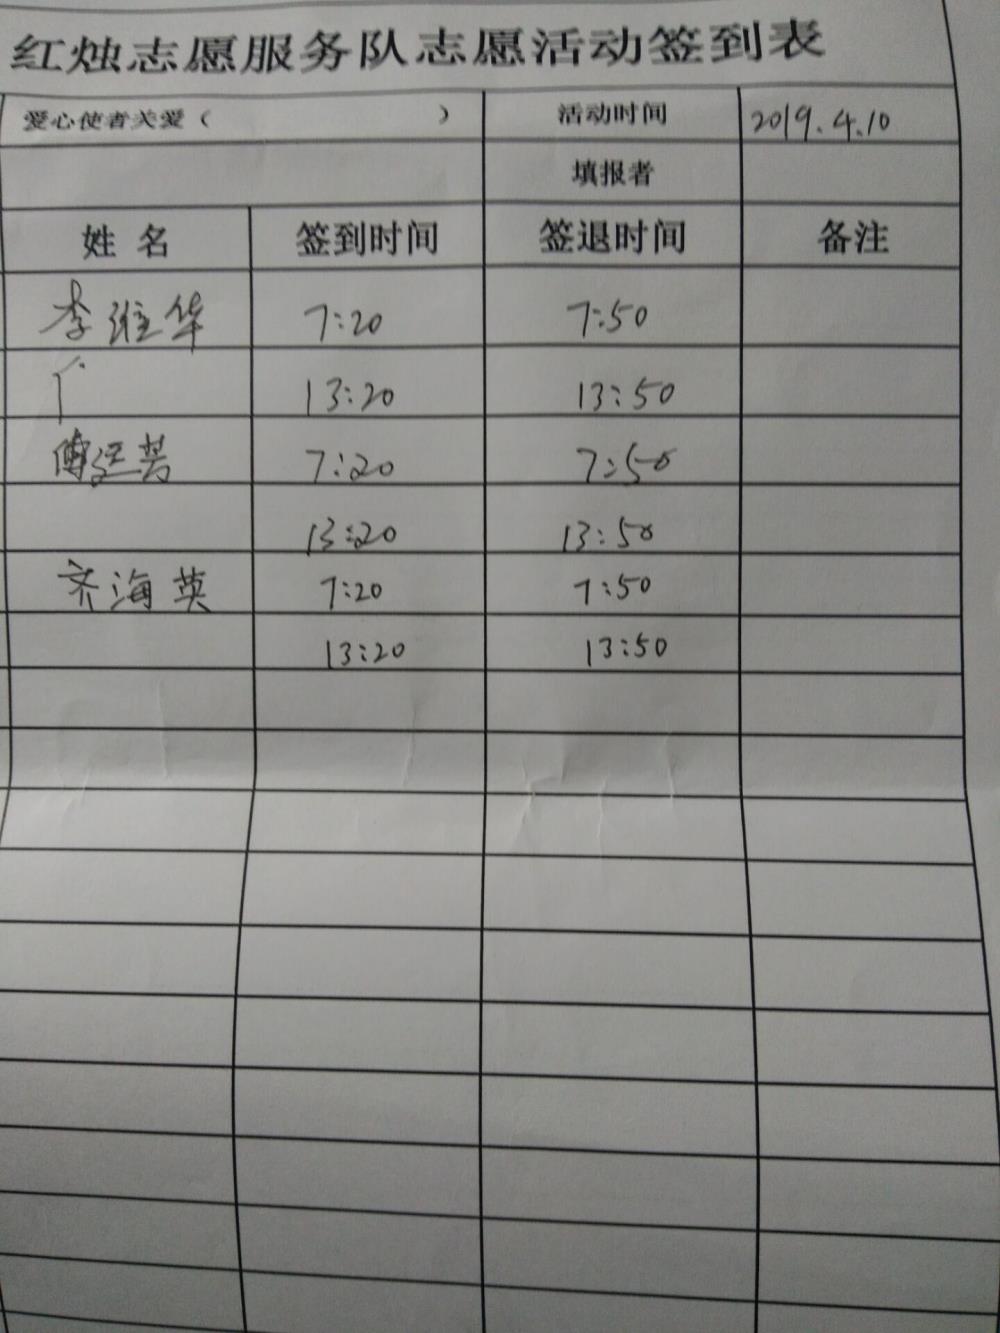 红烛志愿服务队志愿活动签到表
爱心使者关爱（ ） 活动时间 2019.4.10
填报者
姓 名 签到时间 签退时间 备注
李维华 7:20 7:50
13:20 13:50
傅 7:20 7:50
13:20 13:50
齐海英 7:20 7:50
13:20 13:50